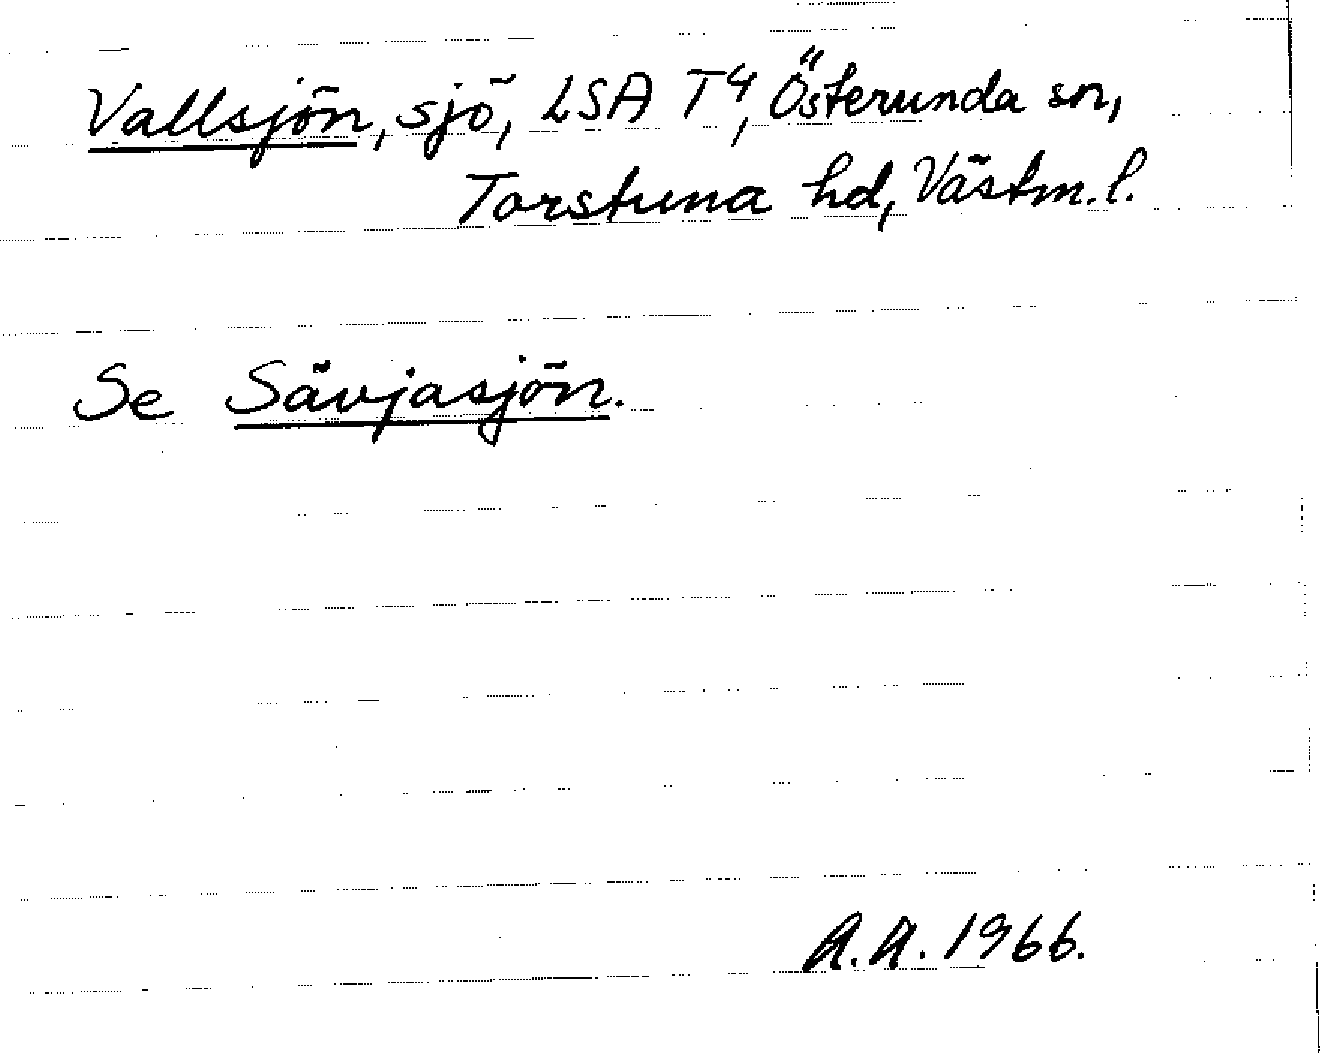 Vallsjön, sjö, LSA T4, Österunda sn,
Torstuna hd, Västm. l.
Se Sävjasjön.
A.A. 1966.